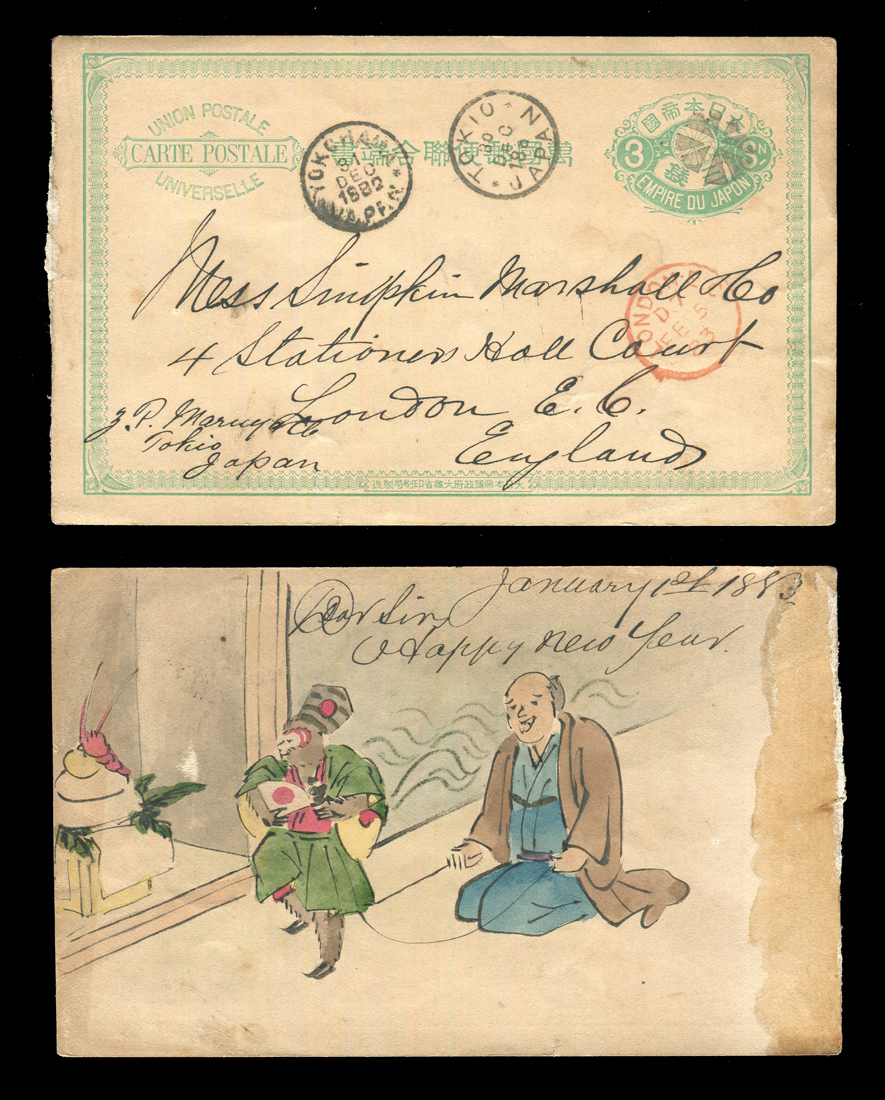 UNION POSTALE
CARTE POSTALE
UNIVERSELLE
萬國郵便聯合端書
大日本帝國
3 SN
EMPIRE DU JAPON
YOKOHAMA
31
DEC
1882
JAPAN
TOKIO
30
DEC
188
JAPAN
LONDON
FE 5
83
Mess Simpkin Marshall & Co
4 Stationers Hall Court
London E.C.
England
Z. P. Maruya & Co
Tokio
Japan
大日本帝國政府大藏省印刷局製造
January 1st 1883
Dear Sir
Happy New Year.